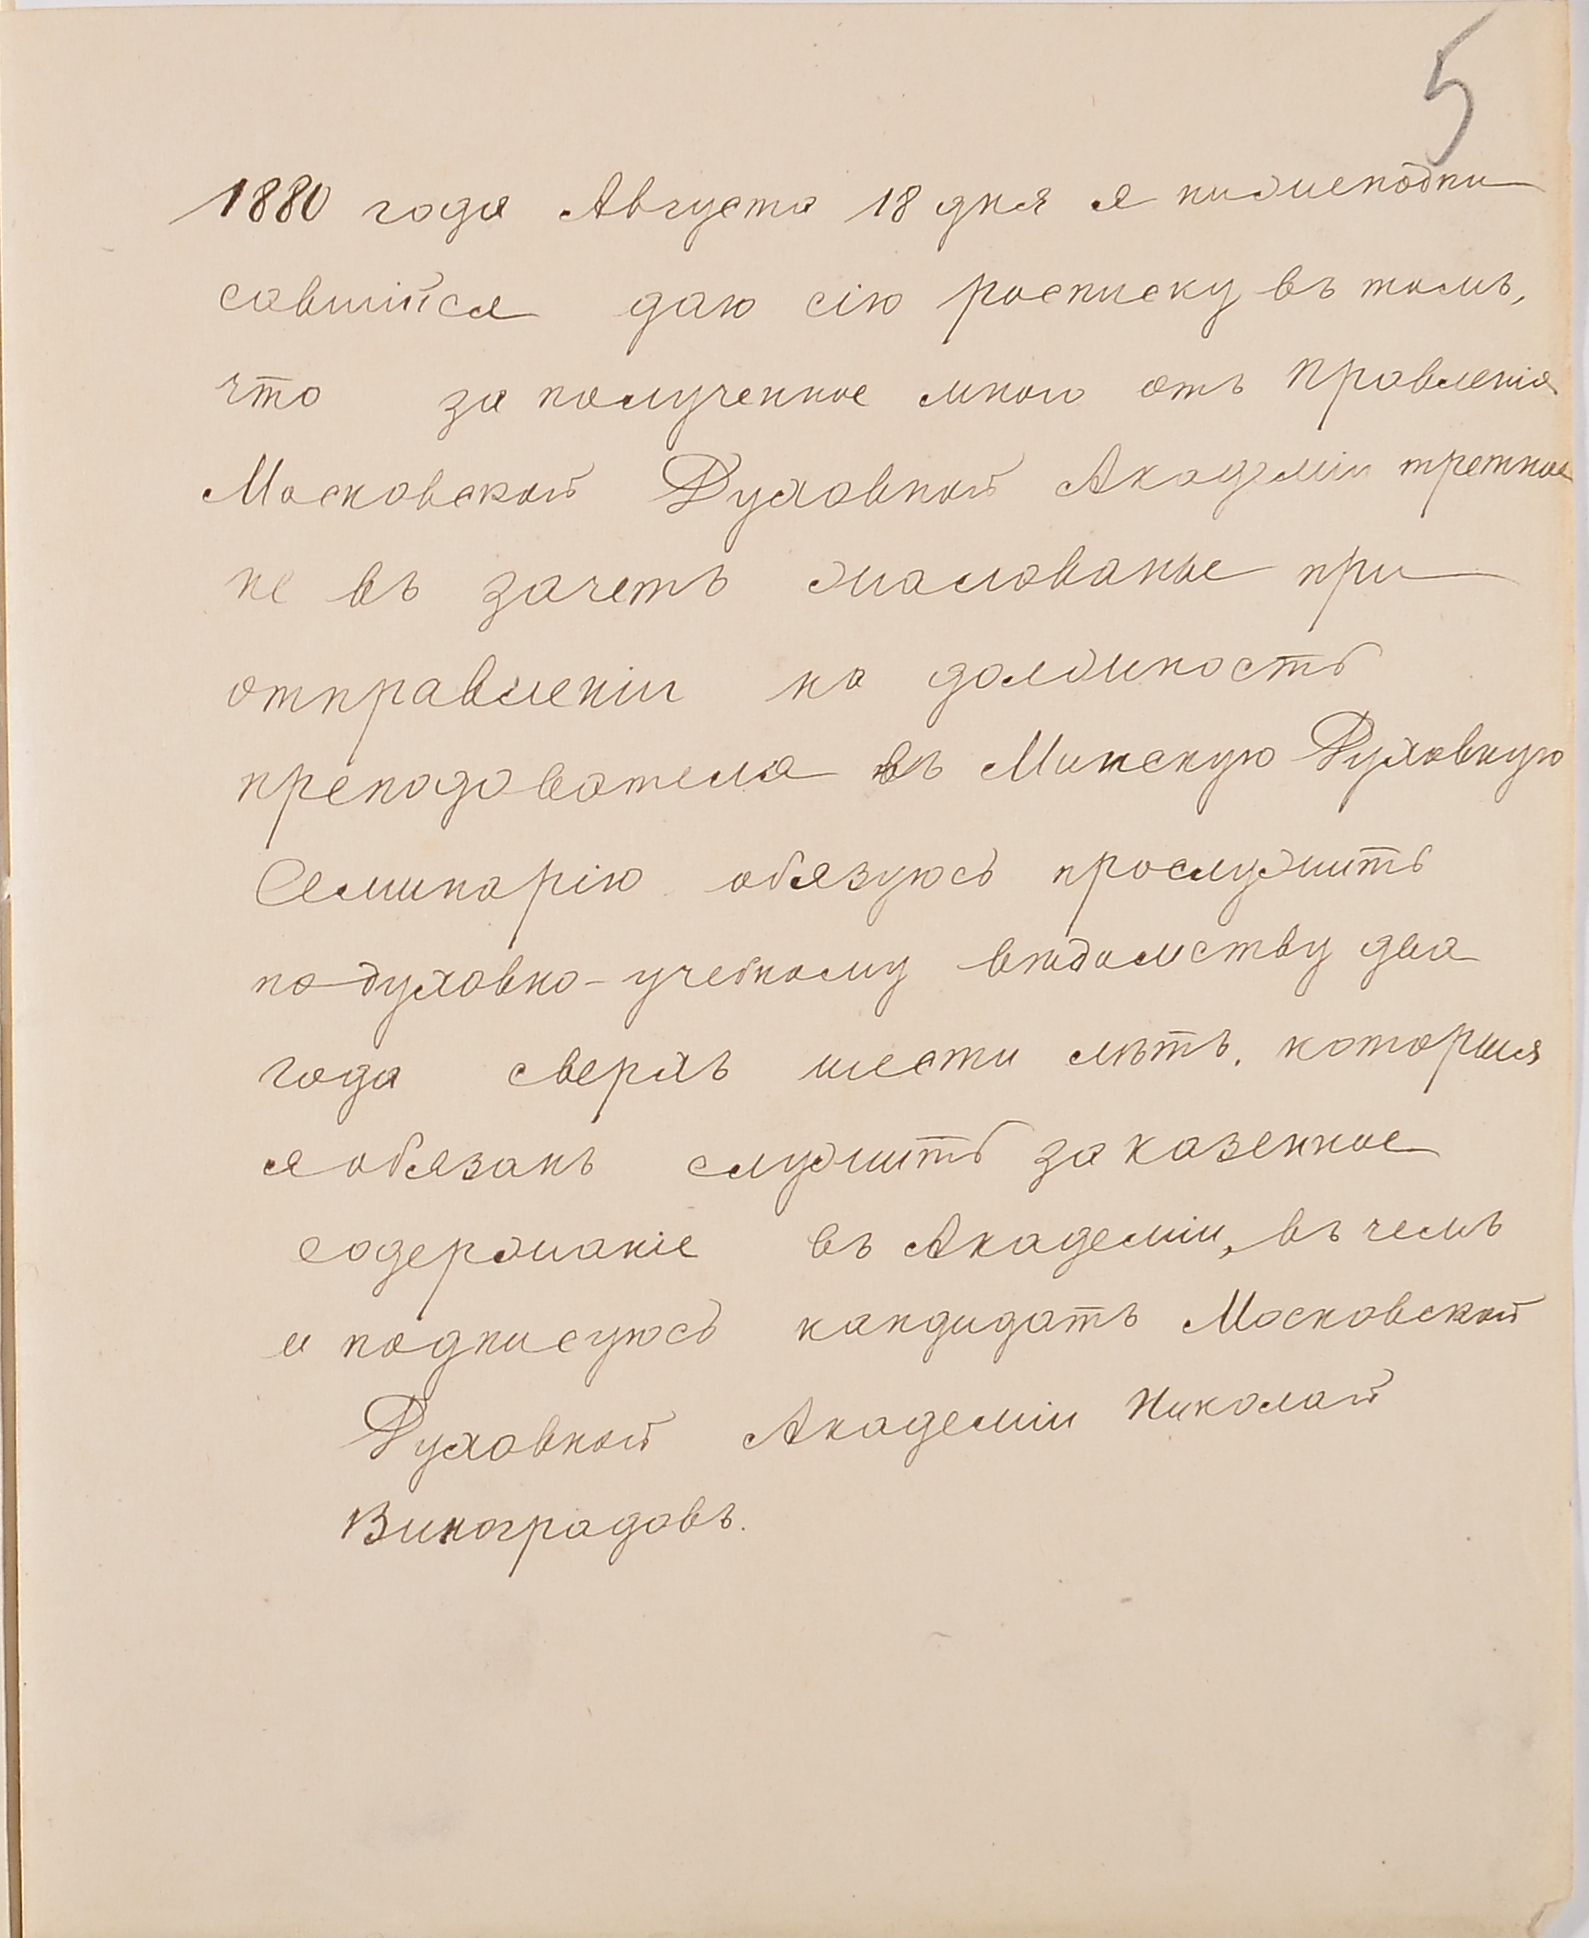 5
1880 года Августа 18 дня я нижеподпи
савшійся даю сію росписку въ томъ,
что за полученное мною отъ Правленія
Московской Духовной Академіи третное
не въ зачетъ жалованье при
отправленіи на должность
преподователя въ Минскую Духовную
Семинарію обязуюсь прослужить
по духовно-учебному вѣдомству два
года сверхъ шести лѣтъ, которыя
я обязанъ служить за казенное
содержаніе въ Академіи, въ чемъ
и подписуюсь кандидатъ Московской
Духовной Академіи Николай
Виноградовъ.